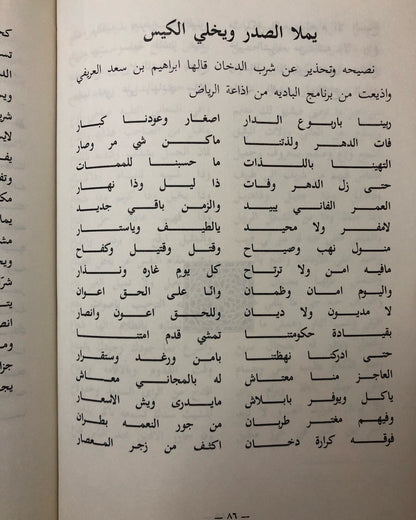 يملا الصدر ويخلي الكيس
نصيحه وتحذير عن شرب الدخان قالها ابراهيم بن سعد العريفي
واذيعت من برنامج الباديه من اذاعة الرياض
ربينا باربوع الدار اصغار وعودنا كبار
فات الدهر ولذتنا ماكن شي مر وصار
التهينا باللذات ما حسبنا للممات
حتى زل الدهر وفات ذا ليل وذا نهار
العمر الفاني يبيد والزمن باقي جديد
لامفر ولا محيد يالطيف وياستار
منول نهب وصباح وقتل وقتيل وكفاح
مافيه امن ولا ترتاح كل يوم غاره ونذار
واليوم امان وظمان وانا على الحق اعوان
لا مديون ولا ديان وللحق اعون وانصار
بقيادة حكومتنا تمشي قدم امتنا
حتى ادركنا نهظتنا بامن ورغد وستقرار
العاجز منا معتاش له بالمجاني معاش
ياكل ويوفر بابلاش مايدرى ويش الاسعار
وفيهم مغتر طربان من جور النعمه بطران
فوقه كرارة دخان اكثف من زجر المعصار
— ٨٦ —